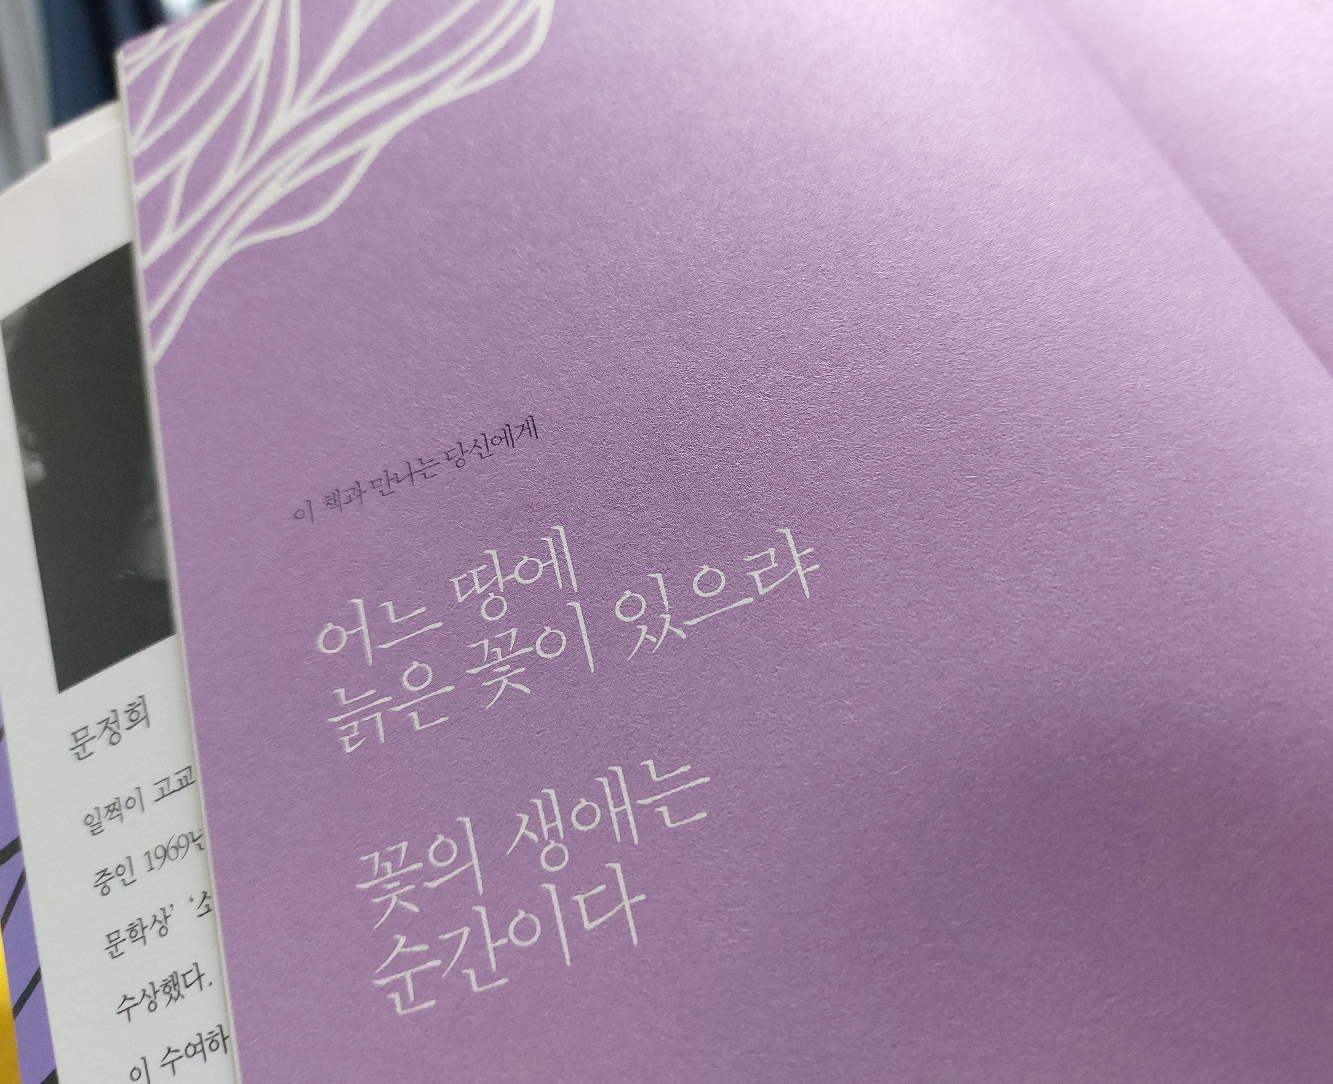 이 책과 만나는 당신에게
어느 땅에
늙은 꽃이 있으랴
꽃의 생애는
순간이다
문정희
일찍이 고교
중인 1969년
문학상’ ‘소
수상했다.
이 수여하